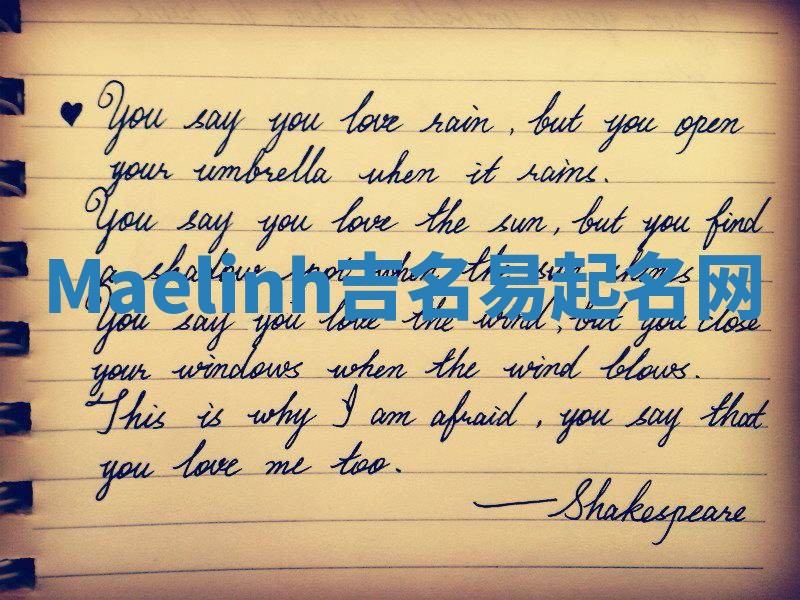 ♥ You say you love rain, but you open
your umbrella when it rains.
You say you love the sun, but you find
a shadow spot when the sun shines
Maelinh吉名易起名网
You say you love the wind, but you close
your windows when the wind blows.
This is why I am afraid, you say that
you love me too.
—Shakespeare